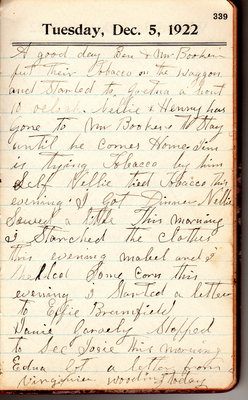 339
Tuesday, Dec. 5, 1922
A good day Ben & Mr Booker
put their tobacco on the waggon
and Started to Gretna a bout
10 oclock. Nellie & Henry has
gone to Mr Bookers to Stay
until he comes Home. Jim
is tyang tobacco by him
Self Nellie tied tobacco this
evening I Got Dinner Nellie
Sewed a little this morning
I Starched the Clothes
this evening mabel and I
Shelled Some Corn this
evening I Started a letter
to Effie Brumfield
Stopped
to See Josie this morning
Edna Got a letter from
Virginia today